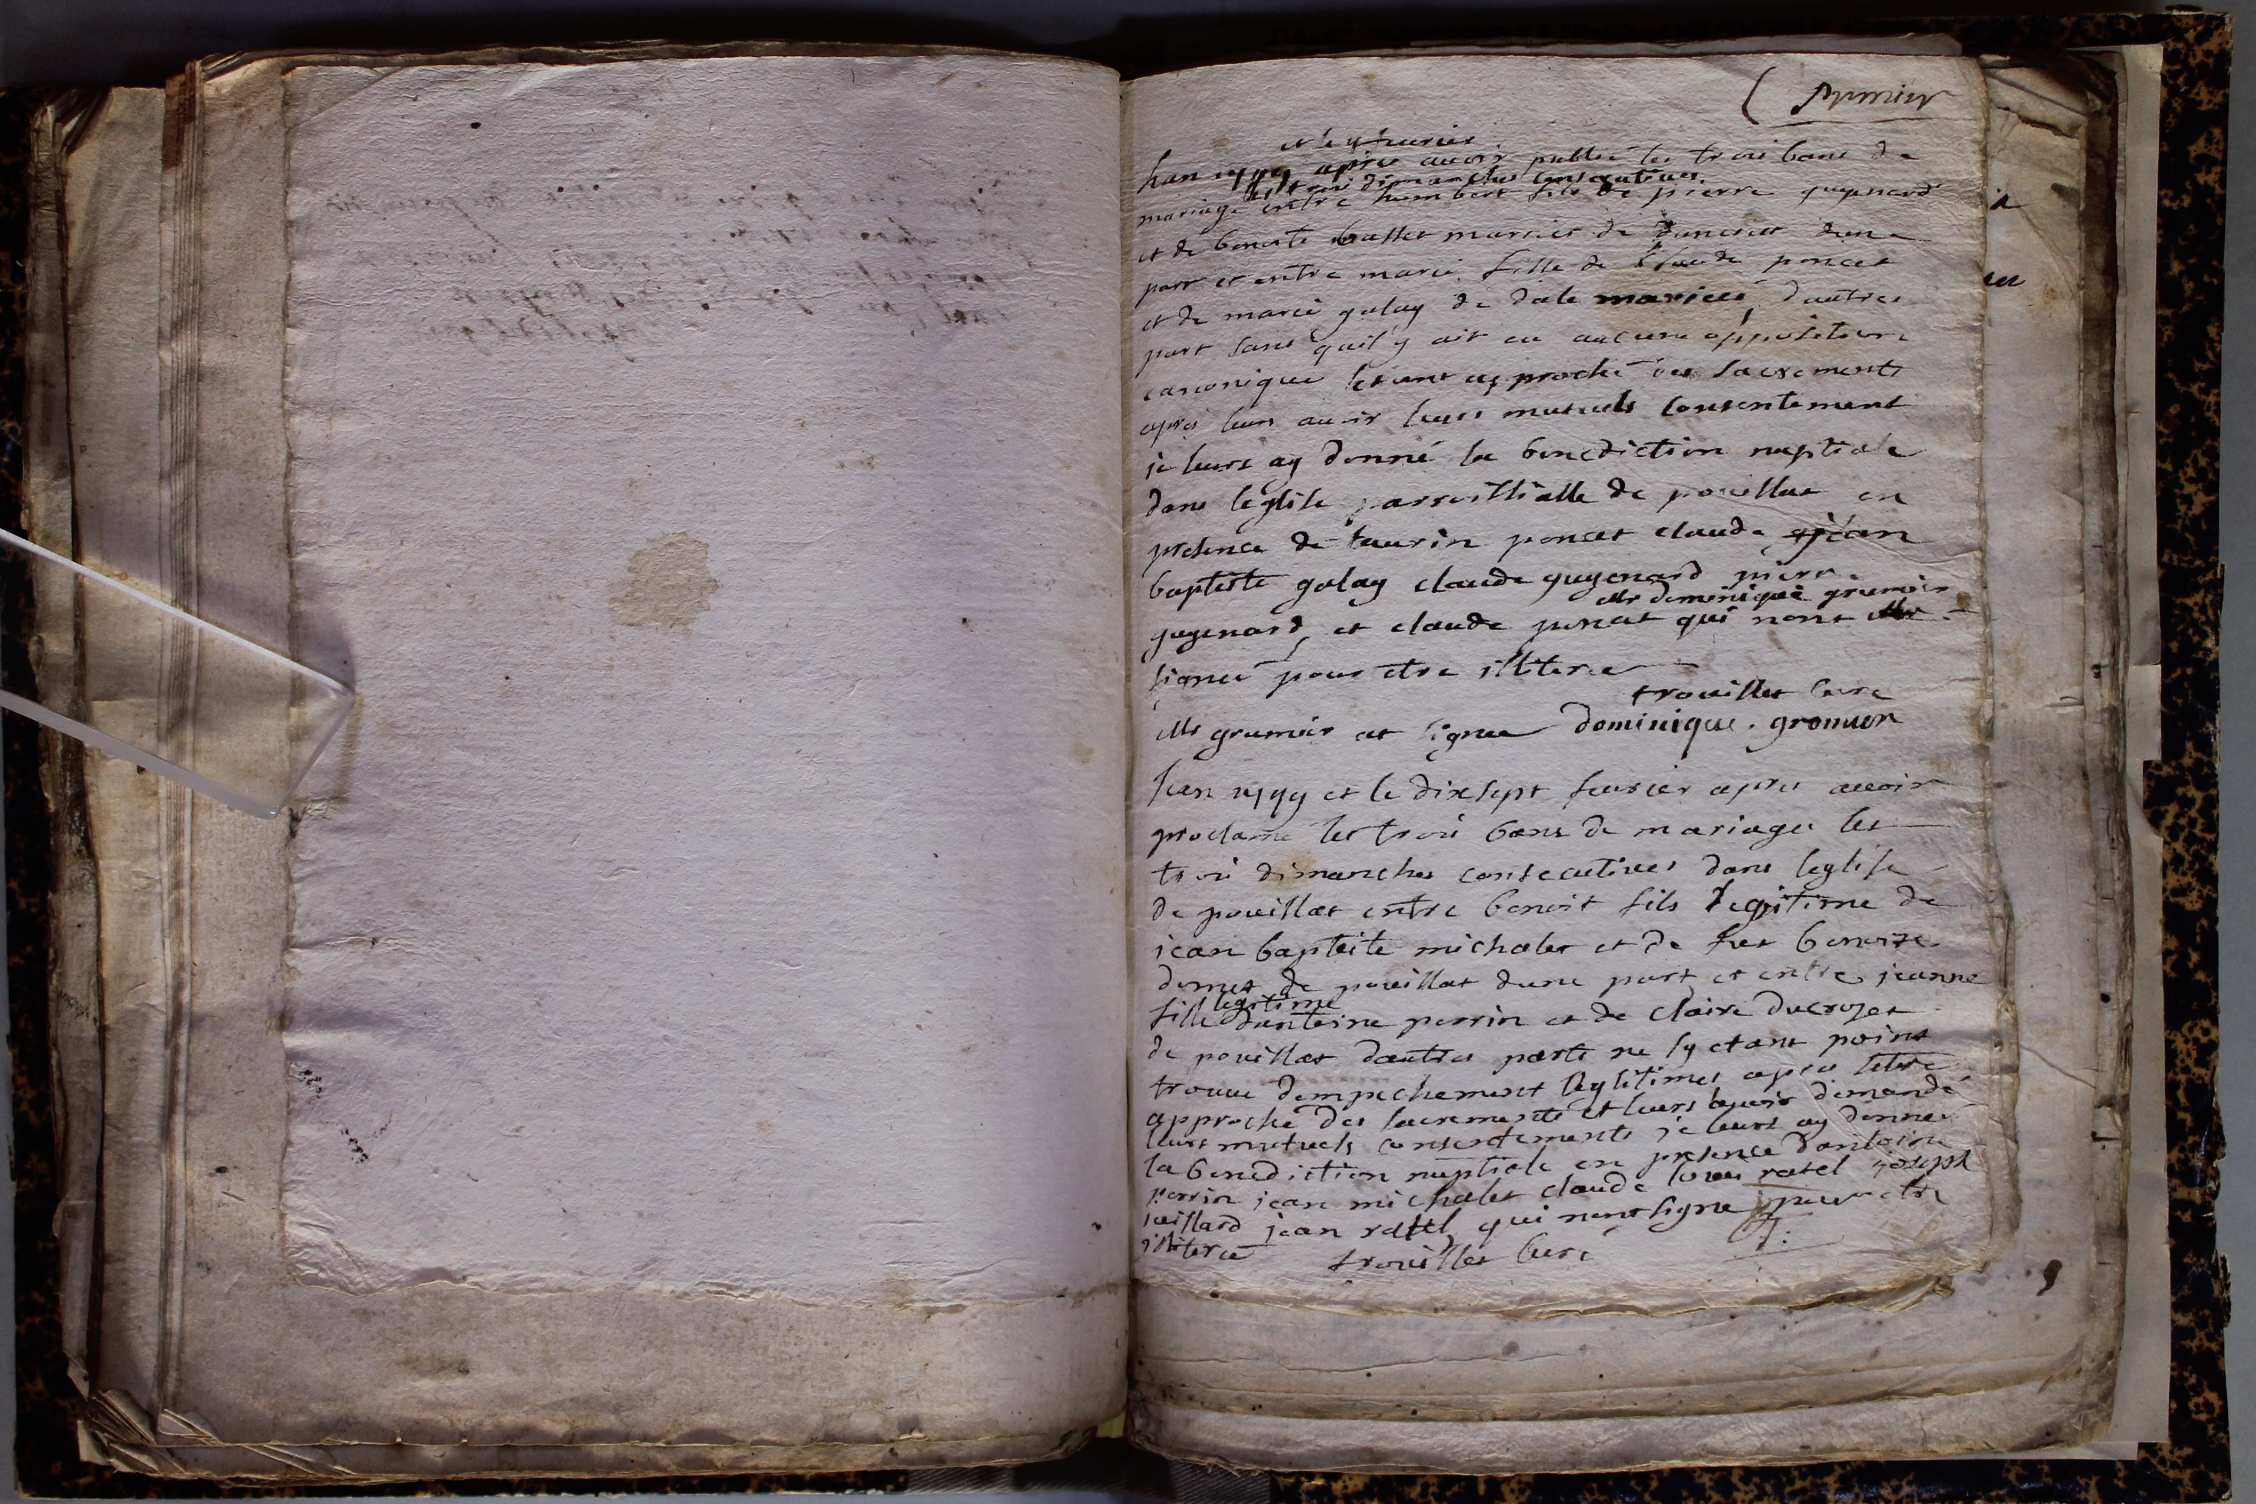 premier
et le 9 feurier
lan 1779 apres auoir publié les troi bans de
les troi dimanches consecutiues
mariage entre humbert fils de pierre guyenard
et de benoite basset mariés de dune
part et entre marie fille de Claude poncet
et de marie galay de dale mariées dautres
part sans quil y ait eu aucune opposition
canonique setant approché des sacrements
apres leurs auoir leurs mutuels consentement
je leurs ay donné la benediction nuptiale
dans leglise parroissialle de pouillat en
presence de taurin poncet claude jean
baptiste galay claude guyenard pierre
mr dominique grumier
guyenard, et claude poncet qui nont
signé pour etre illiteré
trouillet curé
mr grumier at signee dominique . gromier
lan 1779 et le dixsept feurier apres auoir
proclamé les troi bans de mariage les
troi dimanches consecutiues dans leglise
de pouillat entre benoit fils legitime de
jean baptiste michalet et de benoite
de pouillat dune part et entre jeanne
legitime
fille dantoine perrin et de claire ducrozet
de pouillat dautres parts ne sy etant point
trouué dempechement legitimes apres setre
approché des sacrements et leurs auoir demandé
leurs mutuels consentements je leurs ay donneé
la benediction nuptiale en presence dantoine
perrin jean michalet claude louis ratel joseph
juillard jean ratel, qui nont signe pour etre
illiteré trouillet curé